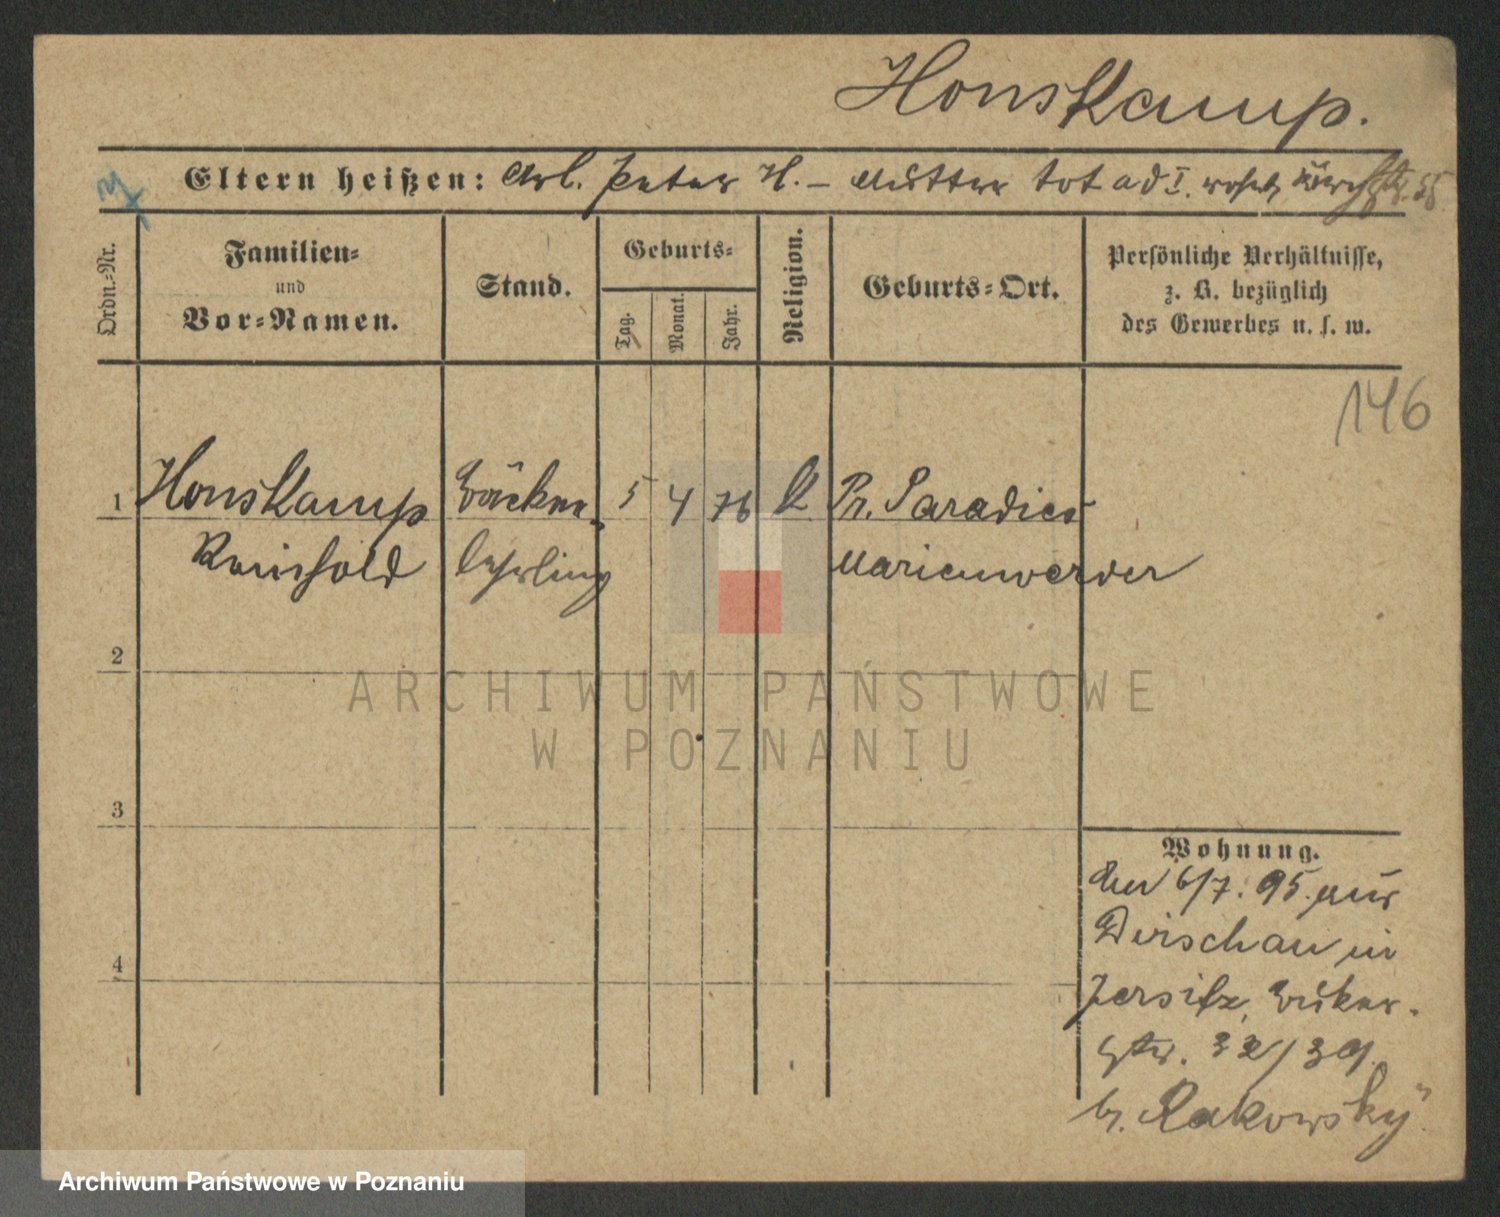 Honskamp.
Eltern heißen: Arb. Peter H. – Mutter tot ad I.
Ordn.-Nr.
Familien-
und
Vor-Namen.
Stand.
Geburts-
Tag.
Monat.
Jahr.
Religion.
Geburts-Ort.
Persönliche Verhältnisse,
z. B. bezüglich
des Gewerbes u. s. w.
146
1 Honskamp Bäcker- 5 4 76 k Pr. Paradies
Reinhold lehrling Marienwerder
2
3
4
ARCHIWUM PAŃSTWOWE
W POZNANIU
Wohnung.
den 6/7. 95. aus
Dirschau in
Jersitz, Buker-
str. 32/39
b. Rakowsky
Archiwum Państwowe w Poznaniu